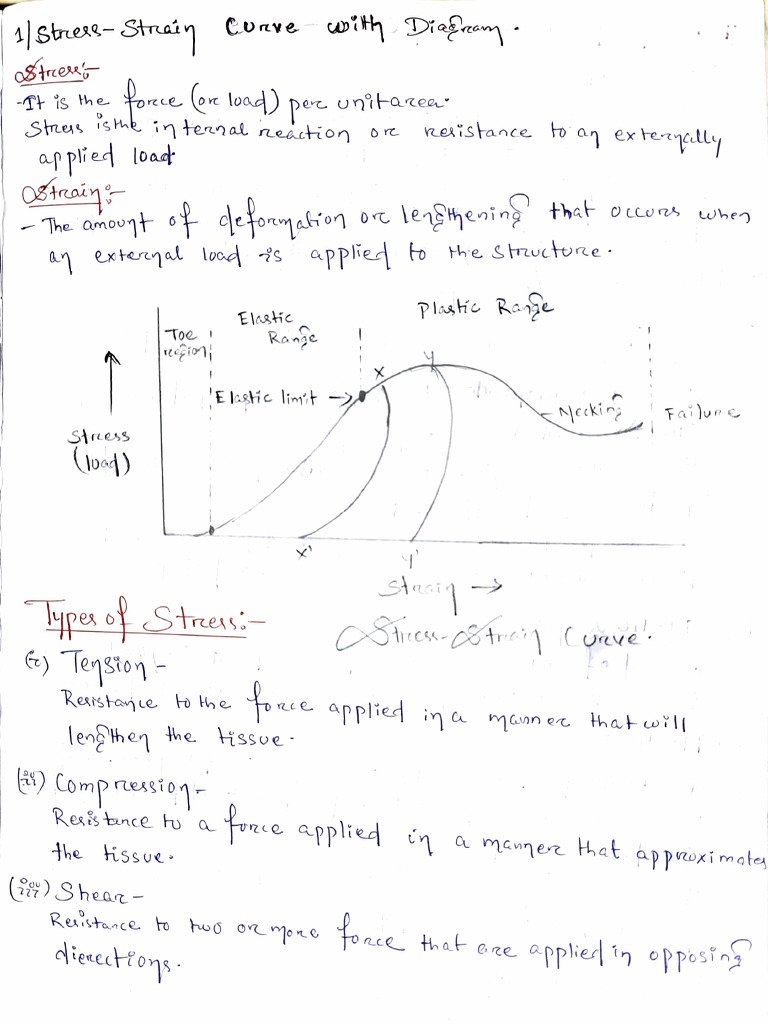 1/ Stress-Strain Curve with Diagram.
Stress:-
-It is the force (or load) per unit area.
Stress is the internal reaction or resistance to an externally
applied load.
Strain:-
- The amount of deformation or lengthening that occurs when
an external load is applied to the structure.
Plastic Range
Elastic
Range
Toe
region
X
Y
Elastic limit →
Necking
Failure
Stress
(load)
X'
Y'
Strain →
Stress-Strain Curve.
Types of Stress:-
(i) Tension -
Resistance to the force applied in a manner that will
lengthen the tissue.
(ii) Compression -
Resistance to a force applied in a manner that approximates
the tissue.
(iii) Shear -
Resistance to two or more force that are applied in opposing
dierections.